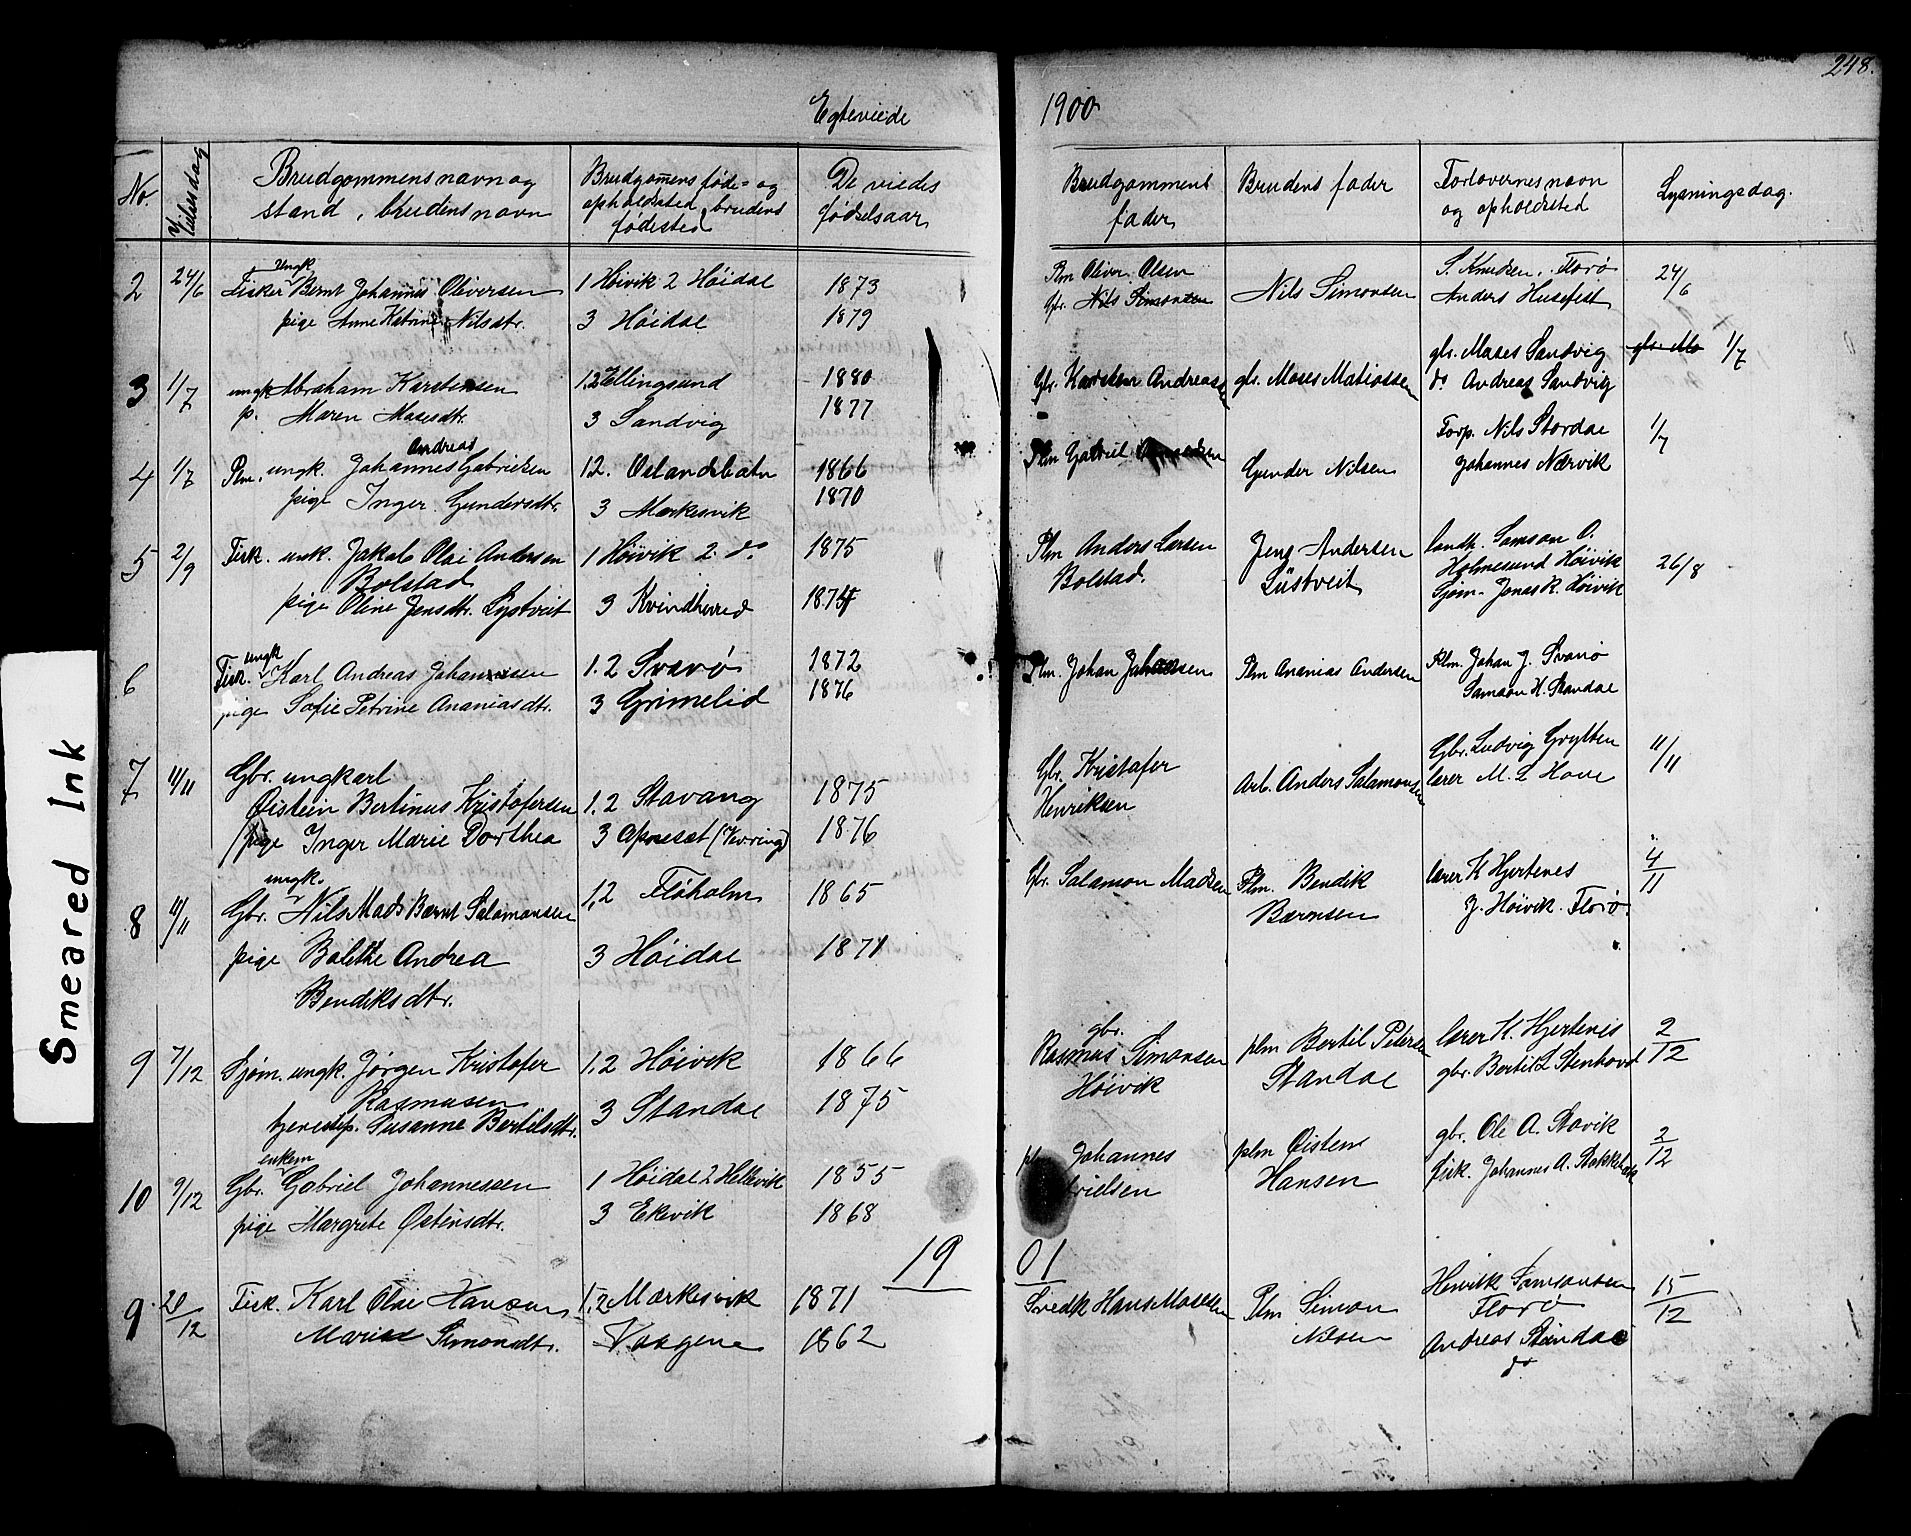 248.
Egteviede
1900
No
Vielsesdag
Brudgommens navn og
stand, brudens navn
Brudgomens føde- og
opholdssted, brudens
fødested
De viedes
fødselsaar
Brudgommens
fader
Brudens fader
Forlovernes navn
og opholdssted
Lysningsdag.
2 24/6 Fisker ungk Bernt Johannes Oliversen 1 Høivik 2 Høidal 1873
pige Anne Katrine Nilsdtr. 3 Høidal 1879
Plm Oliver Olsen
Gbr. Nils Simonsen Nils Simonsen
S. Knudsen, Florø
Anders Husefest
24/6
3 1/7 ungk Abraham Karstensen 1,2 Ellingsund 1880
p. Maren Mosesdtr. 3 Sandvig 1877
Gbr. Karsten Andreassen gbr. Moses Matiassen
gbr. Moses Sandvig
do Andreas Sandvig
gbr. Mo 1/7
4 1/7 Plm. ungk. Johannes Andreas Gabrielsen 1.2. Oslandsbotn 1866
pige Inger Gundersdtr. 3 Markesvik 1870
Plm Gabriel Gunder Nilsen
Forp. Nils Stordal
Johannes Nærvik
1/7
5 2/9 Fisk. unk. Jakob Olai Andersen 1 Høivik 2 do 1875
Bolstad
pige Oline Jensdtr. Lystveit 3 Kvindherred 1874
Plm Anders Larsen
Bolstad.
Jens Andersen
Lüstveit
landh. Samson O.
Holmesund Høivik
Sjøm. Jonas K. Høivik
26/8
6 Fisk. ungk Karl Andreas Johannesen 1.2 Svanø 1872
pige Sofie Petrine Ananiasdtr. 3 Grimelid 1876
Plm. Johan Johannesen Plm Ananias Andersen
Plm. Johan J. Svanø
Samson H. Standal
7 11/11 Gbr. ungkarl
Øistein Bertinus Kristofersen 1,2 Stavang 1875
pige Inger Marie Dorthea 3 Apneset (Vevring) 1876
Gbr. Kristofer
Henriksen
Arb. Anders Salamonsen
Gbr. Ludvig Grytten
lærer M. L. Hove
11/11
8 11/11 Gbr. ungk. Nils Mads Bernt Salamonsen 1,2 Floholm 1865
pige Bolethe Andrea 3 Høidal 1871
Bendiksdtr.
Gbr. Salamon Madsen
Plm. Bendik
Bærnsen
lærer K Hjertenes
J. Høivik. Florø.
4/11
9 7/12 Sjøm. ungk. Jørgen Kristofer 1,2 Høivik 1866
Rasmusen
tjenestep. Susanne Bertilsdtr. 3 Standal 1875
gbr.
Rasmus Simonsen
Høivik
plm Bertil Petersen
Standal
lærer K. Hjertenes
gbr. Bertil L Stenhovd
2/12
10 9/12 Gbr. enkem Gabriel Johannessen 1 Høidal 2 Hellevik 1855
pige Margrete Østensdtr. 3 Ekevik 1868
Johannes
plm Øisten
Hansen
gbr. Ole A. Stavik
fisk. Johannes A. Stokkebæk
2/12
1901
9 20/12 Fisk. Karl Olai Hansen 1,2 Markesvik 1871
Marie Simonsdtr. Vaagene 1862
Snedk Hans Mosesen
Plm Simon
Nilsen
Henrik Samsonsen
Florø
Andreas Standal
do
15/12
Smeared Ink